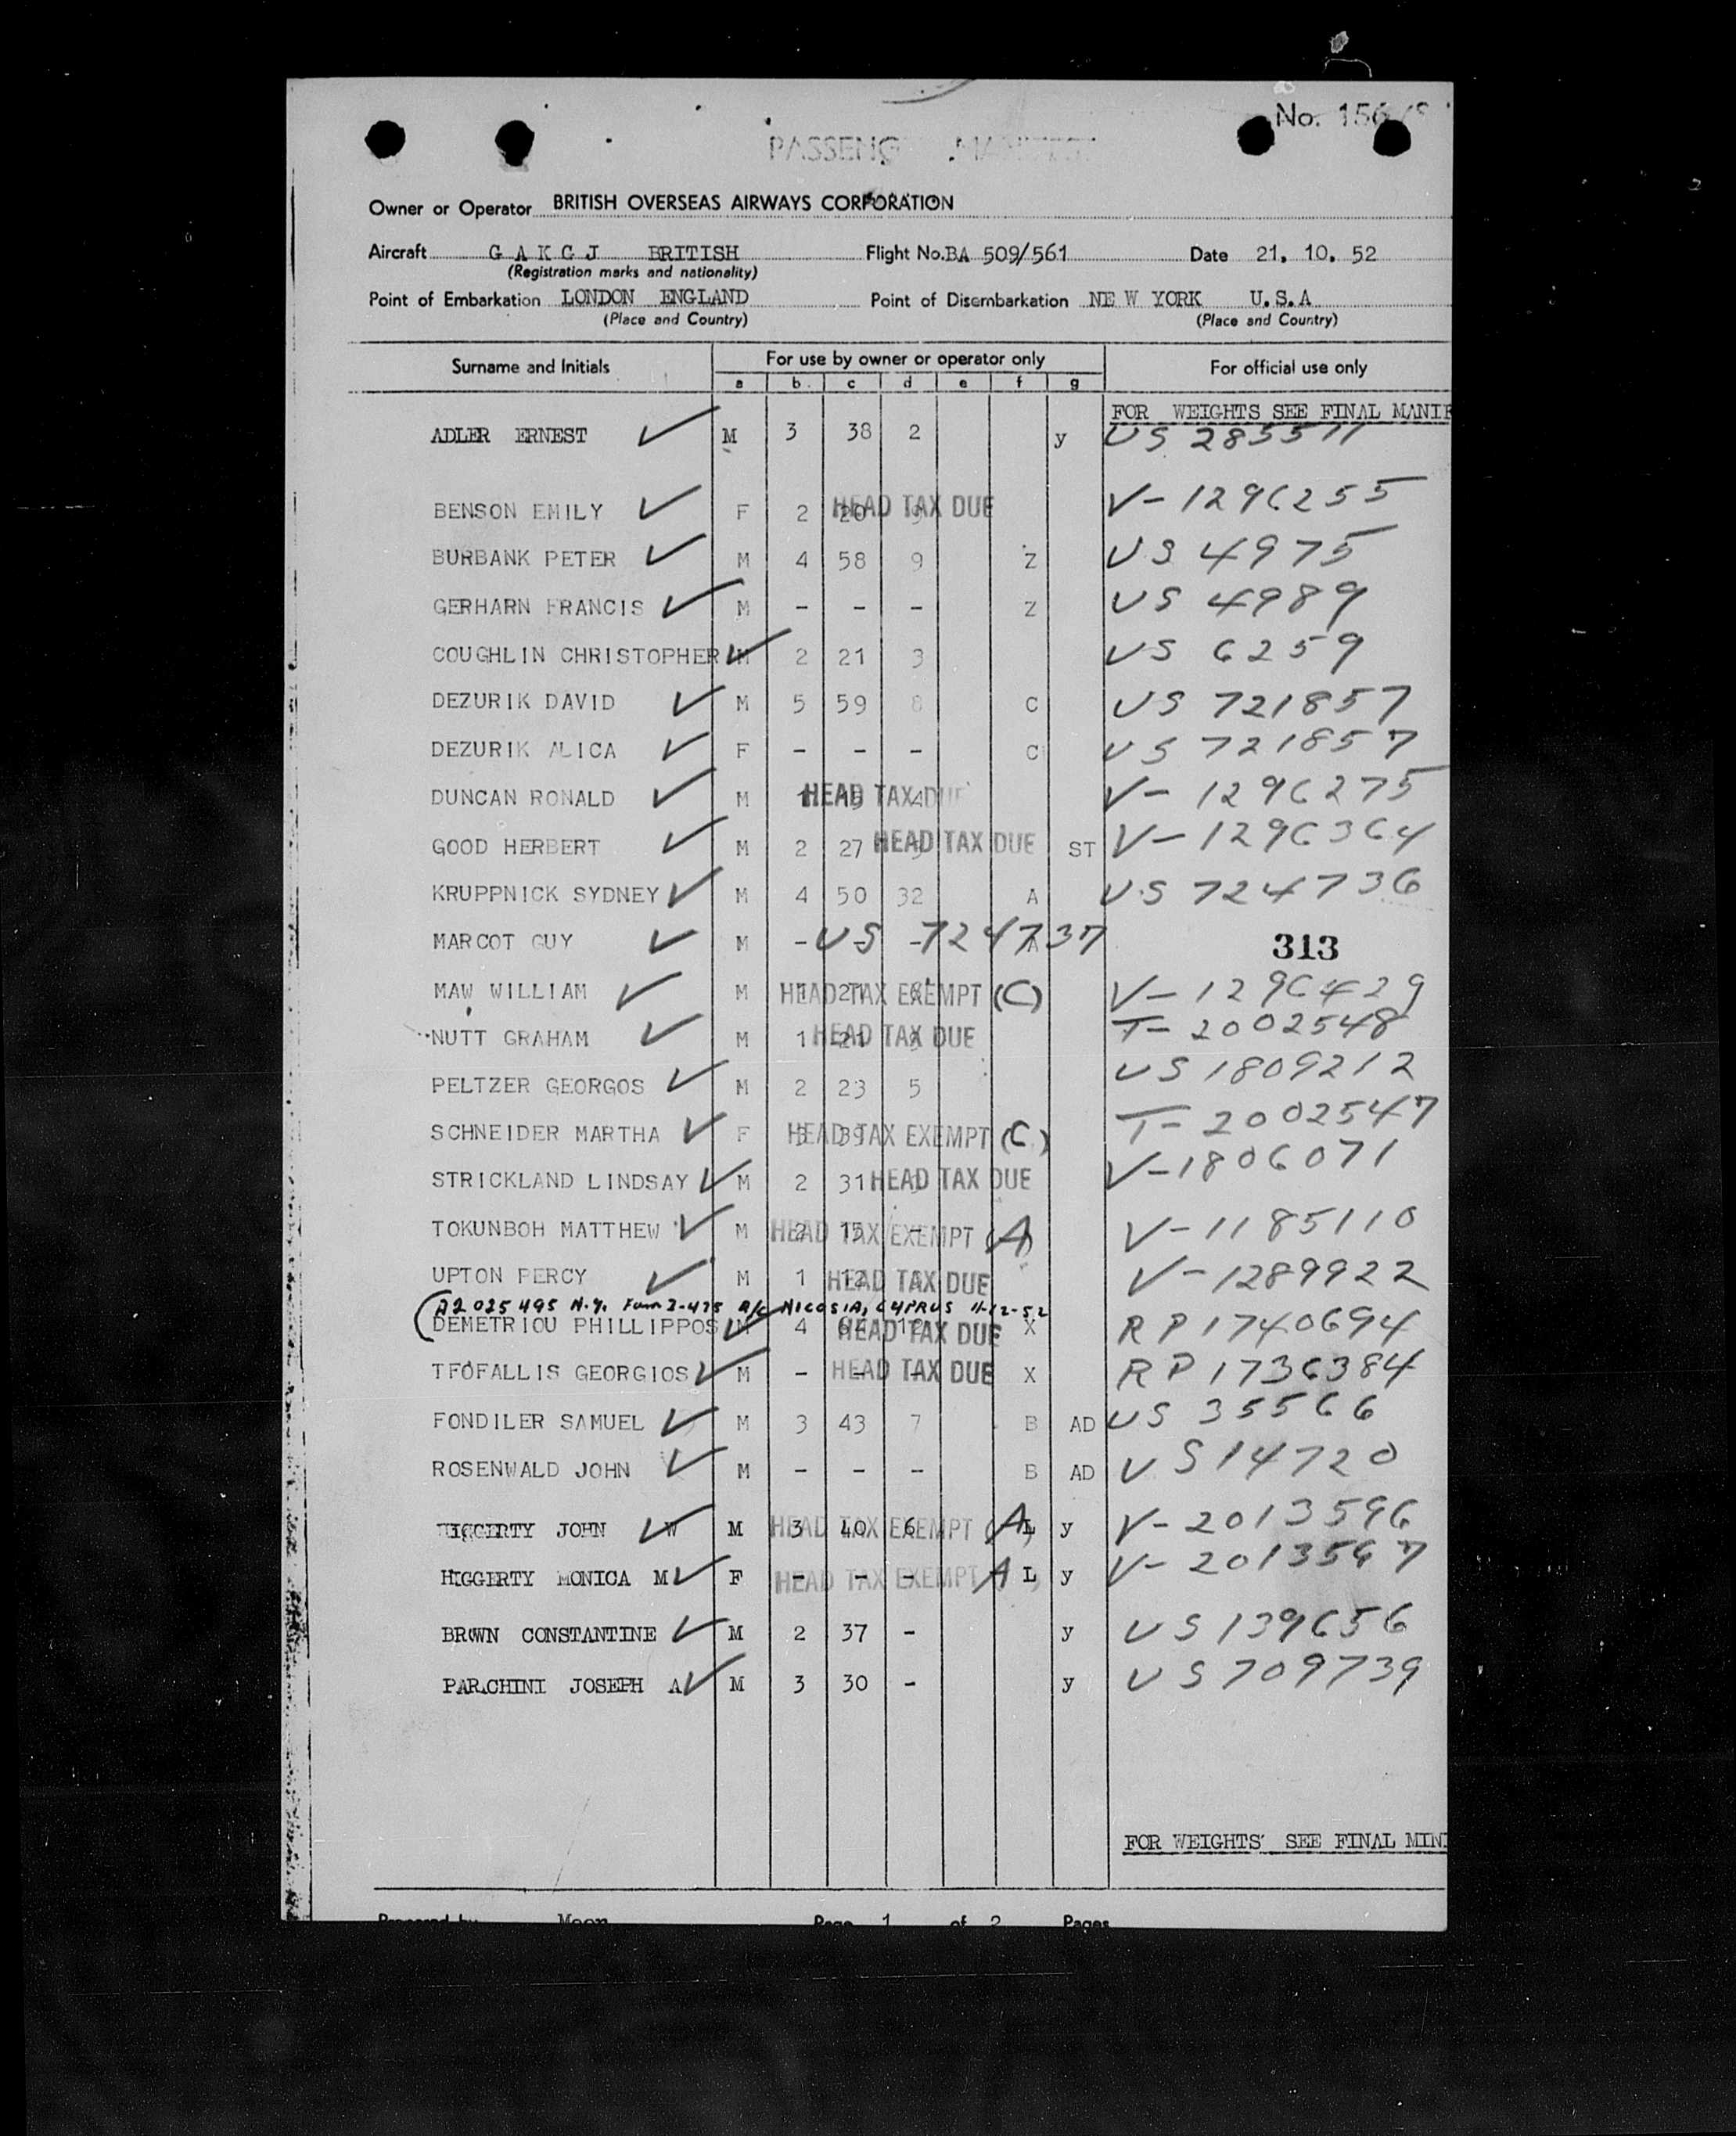 No. 156
PASSENG
Owner or Operator BRITISH OVERSEAS AIRWAYS CORPORATION
Aircraft G A K G J BRITISH Flight No. BA 509/561 Date 21. 10. 52
(Registration marks and nationality)
Point of Embarkation LONDON ENGLAND Point of Disembarkation NEW YORK U.S.A
(Place and Country) (Place and Country)
Surname and Initials For use by owner or operator only For official use only
a b c d e f g
FOR WEIGHTS SEE FINAL MANIF
ADLER ERNEST M 3 38 2 y US 285511
BENSON EMILY F 2 20 HEAD TAX DUE V-1296255
BURBANK PETER M 4 58 9 Z US 4975
GERHARN FRANCIS M - - - Z US 4989
COUGHLIN CHRISTOPHER M 2 21 3 US 6259
DEZURIK DAVID M 5 59 8 C US 721857
DEZURIK ALICA F - - - C US 721857
DUNCAN RONALD M HEAD TAX DUE 4 V-1296275
GOOD HERBERT M 2 27 HEAD TAX DUE ST V-1296364
KRUPPNICK SYDNEY M 4 50 32 A US 724736
MARCOT GUY M - - - A US 724737
313
MAW WILLIAM M HEAD TAX EXEMPT (C) V-1296429
NUTT GRAHAM M 1 21 HEAD TAX DUE T-2002548
PELTZER GEORGOS M 2 23 5 US 1809212
SCHNEIDER MARTHA F 3 39 HEAD TAX EXEMPT (C) T-2002547
STRICKLAND LINDSAY M 2 31 HEAD TAX DUE V-1806071
TOKUNBOH MATTHEW M 2 15 - HEAD TAX EXEMPT (A) V-1185110
UPTON PERCY M 1 12 HEAD TAX DUE V-1289922
A2 025 495 N.Y. Form I-475 a/c NICOSIA, CYPRUS 11-12-52
DEMETRIOU PHILLIPPOS M 4 HEAD TAX DUE X RP 1740694
TFOFALLIS GEORGIOS M - - - HEAD TAX DUE X RP 1736384
FONDILER SAMUEL M 3 43 7 B AD US 35566
ROSENWALD JOHN M - - - B AD US 14720
HIGGERTY JOHN W M 3 40 6 HEAD TAX EXEMPT (A) L y V-2013596
HIGGERTY MONICA M F - - - HEAD TAX EXEMPT (A) L y V-2013567
BROWN CONSTANTINE M 2 37 - y US 139656
PARCHINI JOSEPH A M 3 30 - y US 709739
FOR WEIGHTS SEE FINAL MINI
Prepared by Moon Page 1 of 2 Pages